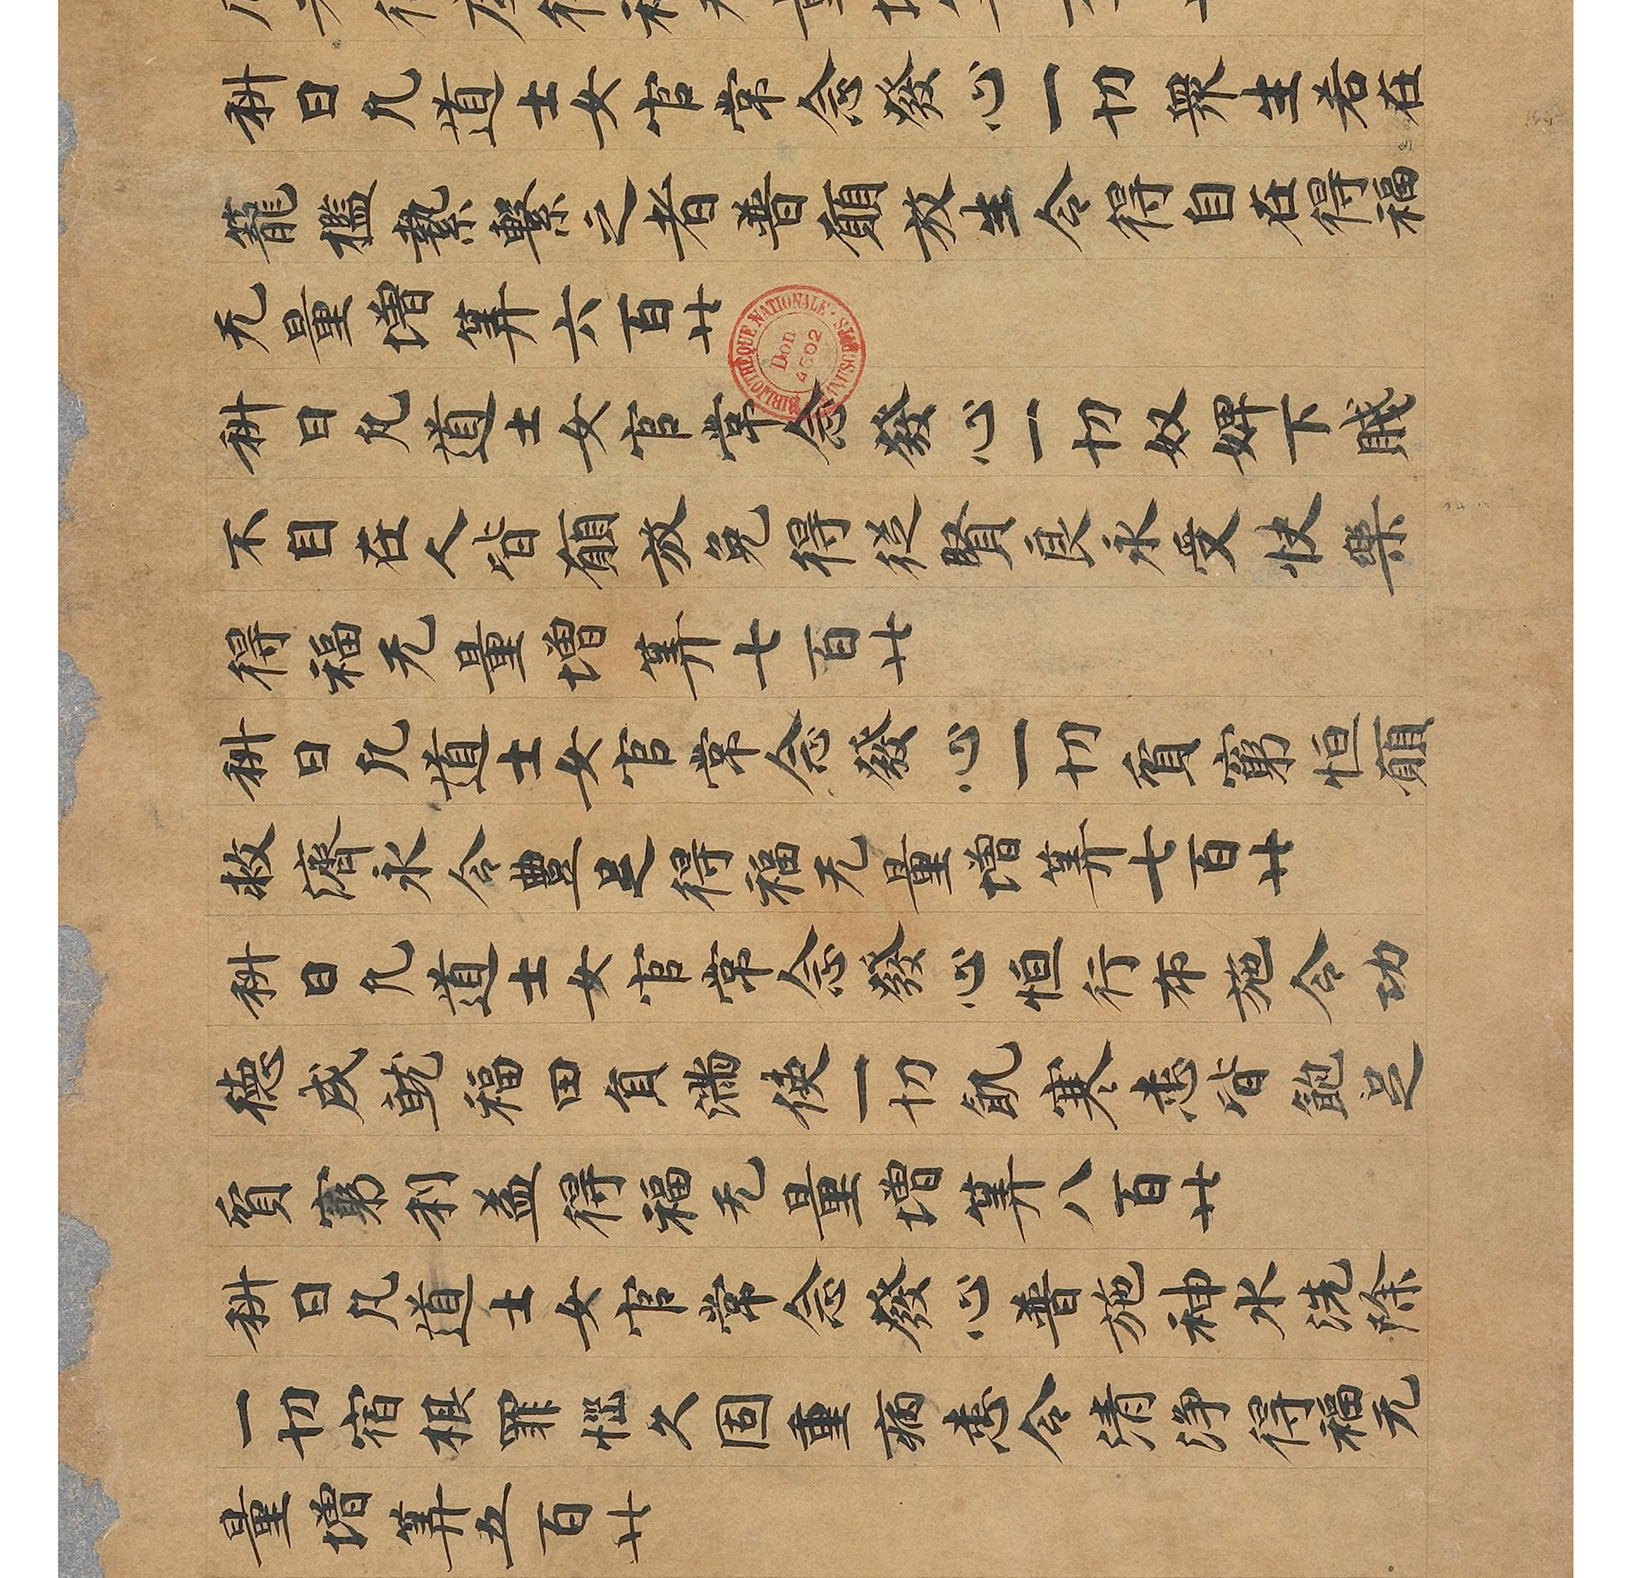 科曰凡道士女官常念發心一切衆生若在
籠檻縶繫之者普願放生令得自在得福
无量增筭六百廿
科曰凡道士女官常念發心一切奴婢下賤
不自在人皆願放免得從賢良永受快樂
得福无量增筭七百廿
科曰凡道士女官常念發心一切貧窮恒願
救濟永令豊足得福无量增筭七百廿
科曰凡道士女官常念發心恒行布施令功
德成就福田員滿使一切飢寒悉皆飽足
貧窮利益得福无量增筭八百廿
科曰凡道士女官常念發心普施神水洗除
一切宿根罪惱久固重病悉令清淨得福无
量增筭五百廿
BIBLIOTHÈQUE NATIONALE · MANUSCRITS
Don
4502